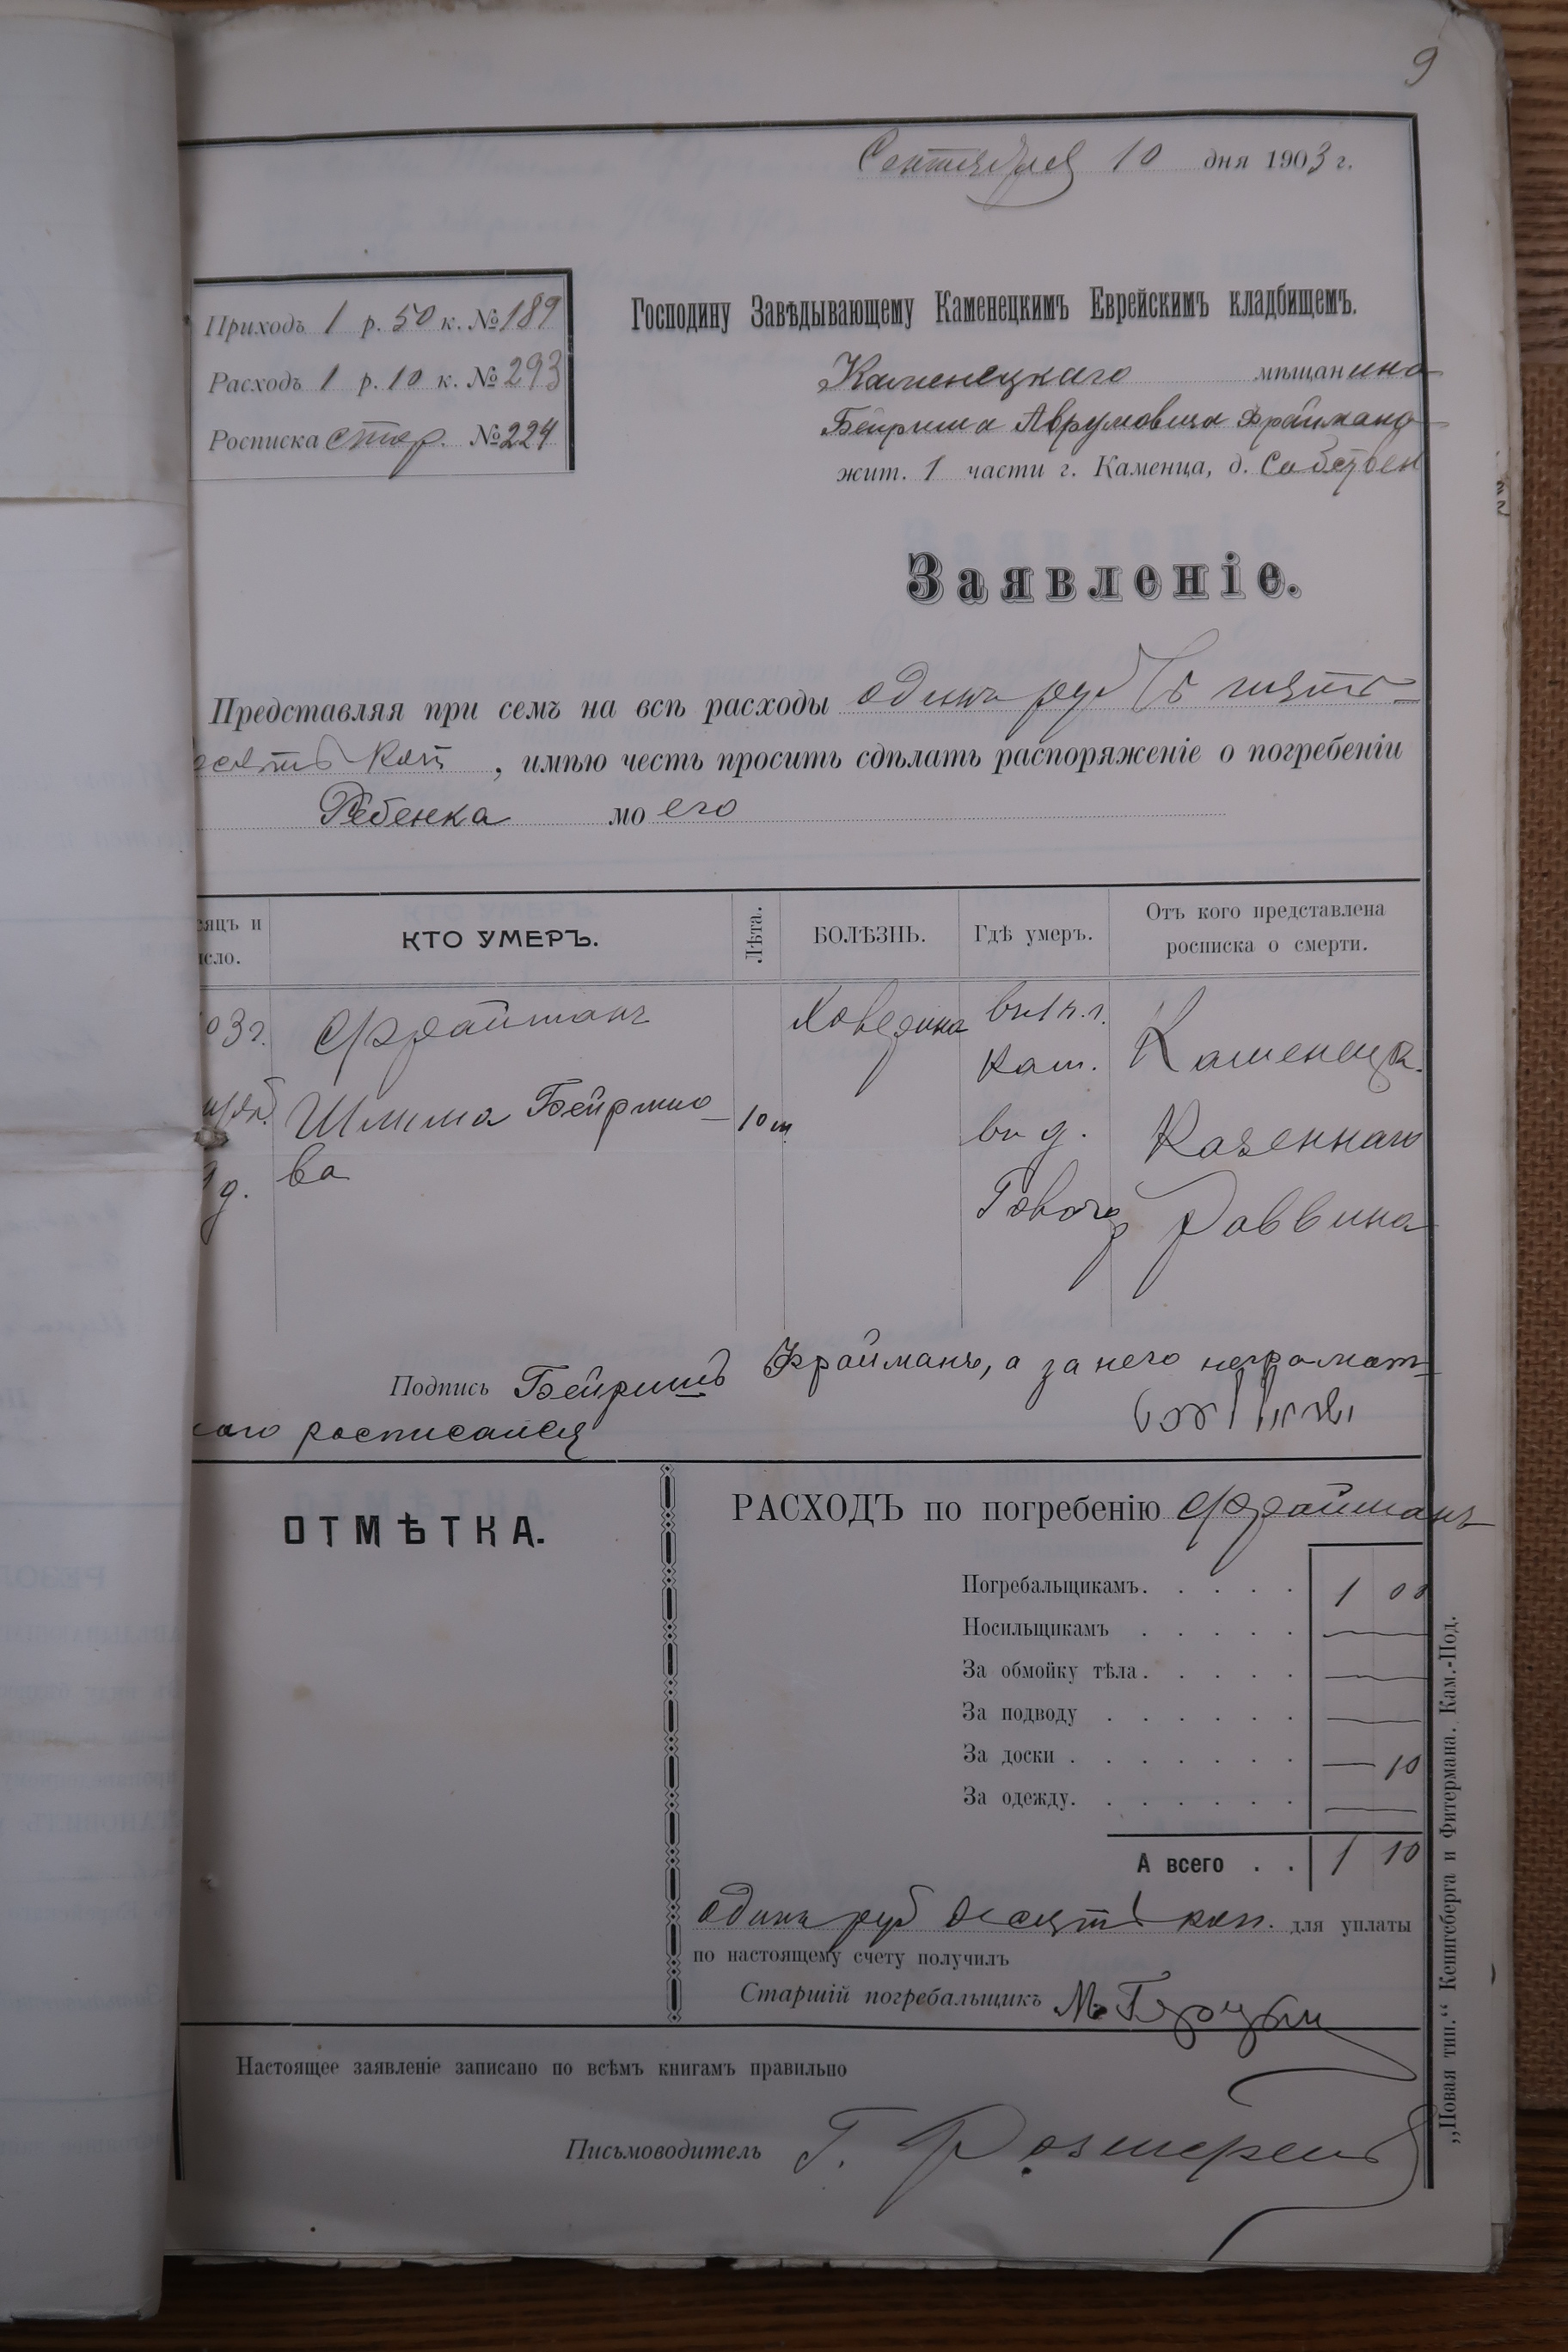 9
Сентября 10 дня 1903 г.
Приходъ 1 р. 50 к. № 189
Расходъ 1 р. 10 к. № 293
Росписка стар. № 224
Господину Завѣдывающему Каменецкимъ Еврейскимъ кладбищемъ.
Каменецкаго мѣщанина
Бейриша Аврумовича Фраймана
жит. 1 части г. Каменца, д. Собствен
Заявленіе.
Представляя при семъ на всѣ расходы одинъ рубль пять-
десять коп , имѣю честь просить сдѣлать распоряженіе о погребеніи
Ребенка моего
сяцъ и
исло.
КТО УМЕРЪ.
Лѣта.
БОЛѢЗНЬ.
Гдѣ умеръ.
Отъ кого представлена
росписка о смерти.
03 г. Фрайманъ въ 1 ч. г. Каменецк.
Кам.
Бейришо- 10 м въ д. Казеннаго
ва
9 д. Раввина
Подпись Бейришъ Фрайманъ, а за него неграмот-
наго росписался
ОТМѢТКА.
РАСХОДЪ по погребенію Фрайманъ
Погребальщикамъ. . . . . 1 00
Носильщикамъ . . . . . —
За обмойку тѣла. . . . . —
За подводу . . . . . . —
За доски . . . . . . . — 10
За одежду. . . . . . . —
А всего . . 1 10
одинъ руб десять коп. для уплаты
по настоящему счету получилъ
Старшій погребальщикъ М.
Настоящее заявленіе записано по всѣмъ книгамъ правильно
Письмоводитель Г.
„Новая тип.“ Кенигсберга и Фитермана. Кам.-Под.